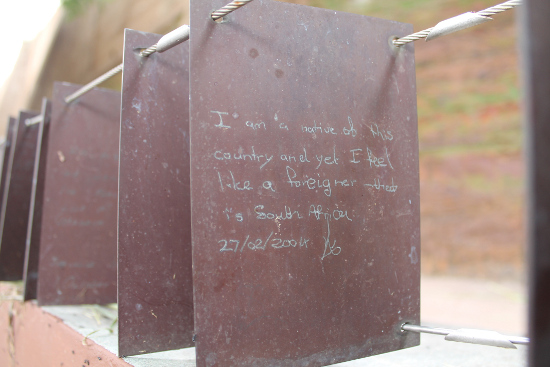 I am a native of this
country and yet I feel
like a foreigner - that
is South Africa
27/02/2004